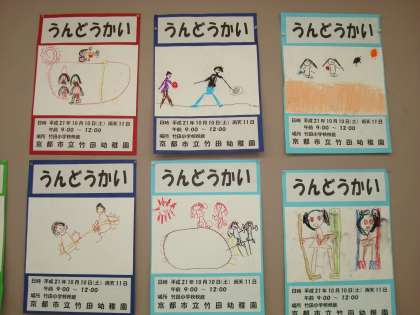 うんどうかい
日時 平成21年10月10日(土) 雨天11日
午前 9:00 ～ 12:00
場所 竹田小学校校庭
京都市立竹田幼稚園
うんどうかい
日時 平成21年10月10日(土) 雨天11日
午前 9:00 ～ 12:00
場所 竹田小学校校庭
京都市立竹田幼稚園
うんどうかい
日時 平成21年10月10日(土) 雨天11日
午前 9:00 ～ 12:00
場所 竹田小学校校庭
京都市立竹田幼稚園
うんどうかい
日時 平成21年10月10日(土) 雨天11日
午前 9:00 ～ 12:00
場所 竹田小学校校庭
京都市立竹田幼稚園
うんどうかい
日時 平成21年10月10日(土) 雨天11日
午前 9:00 ～ 12:00
場所 竹田小学校校庭
京都市立竹田幼稚園
うんどうかい
日時 平成21年10月10日(土) 雨天11日
午前 9:00 ～ 12:00
場所 竹田小学校校庭
京都市立竹田幼稚園